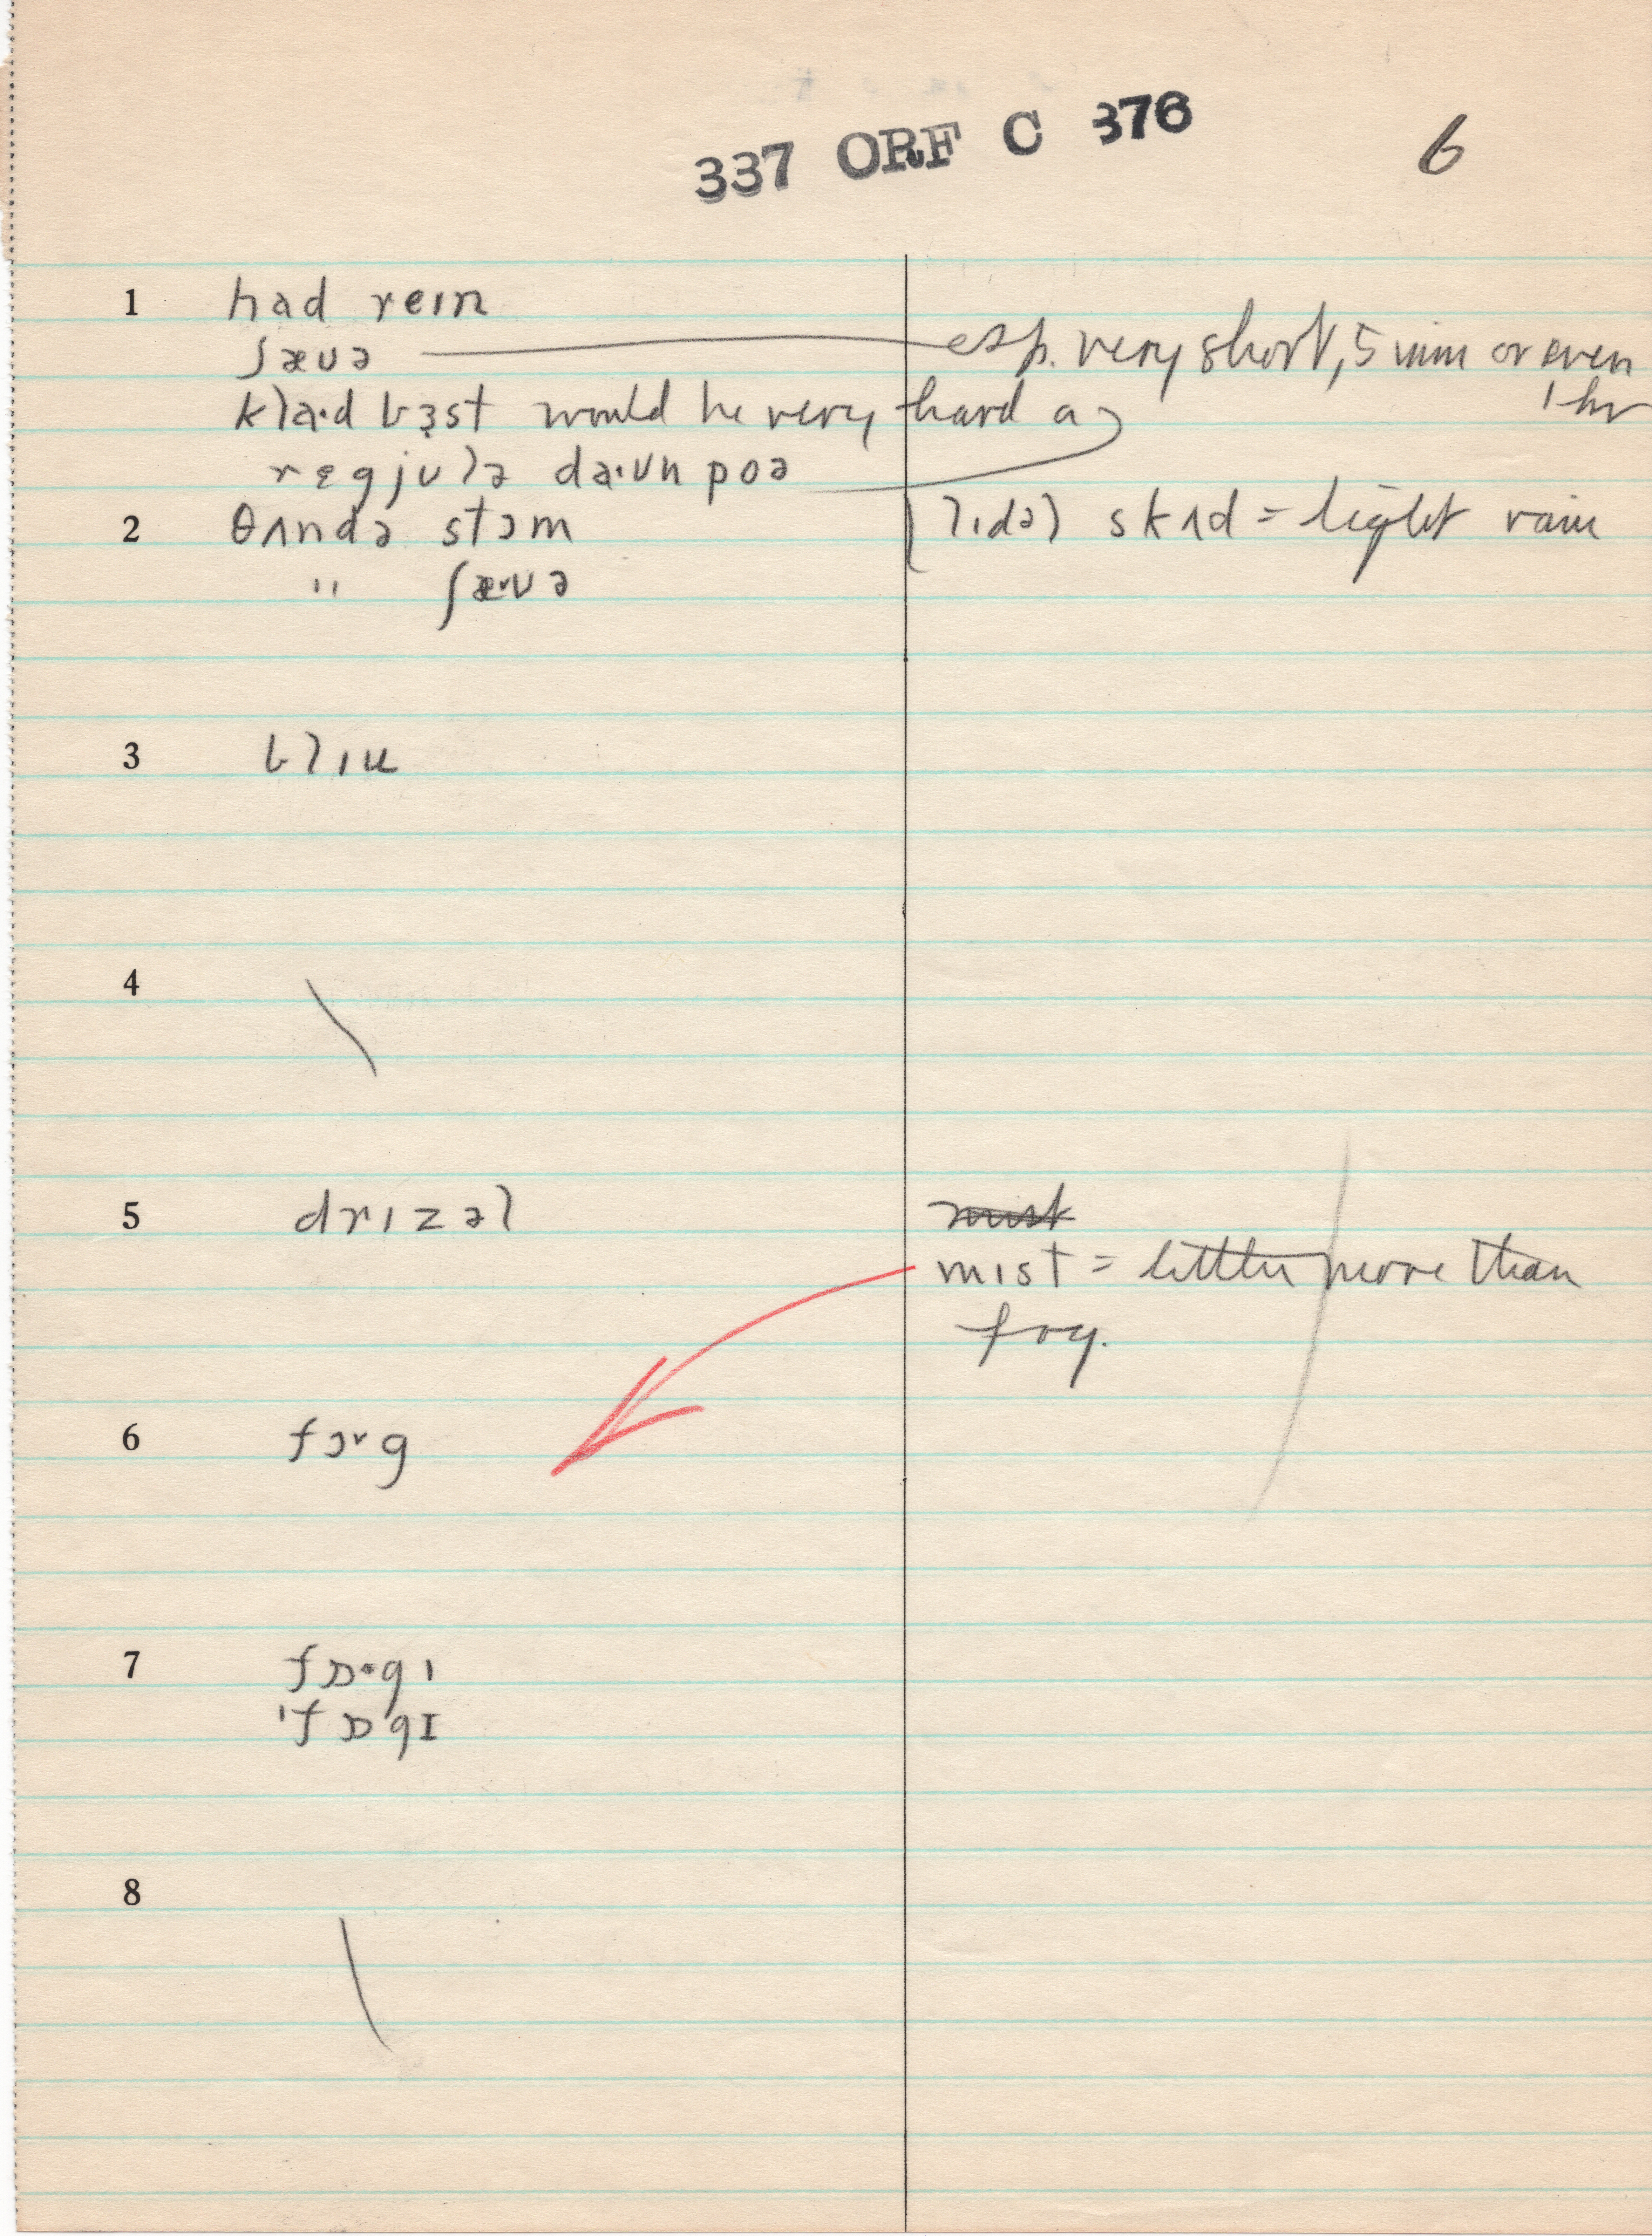 337 ORF C 376
6
1 had reın
ʃæʊə esp. very short, 5 min or even
1 hr
klaˑd bɜst would be very hard a
rɛgjulə daˑʊn poə
2 θʌndə stɔm
(lɪdəl skʌd = light rain
" ʃæˑʊə
3 blıu
4
5 drızəl
mist
mıst = little more than
fog.
6 fɔˑg
7 fɒˑgı
'fɒgɪ
8